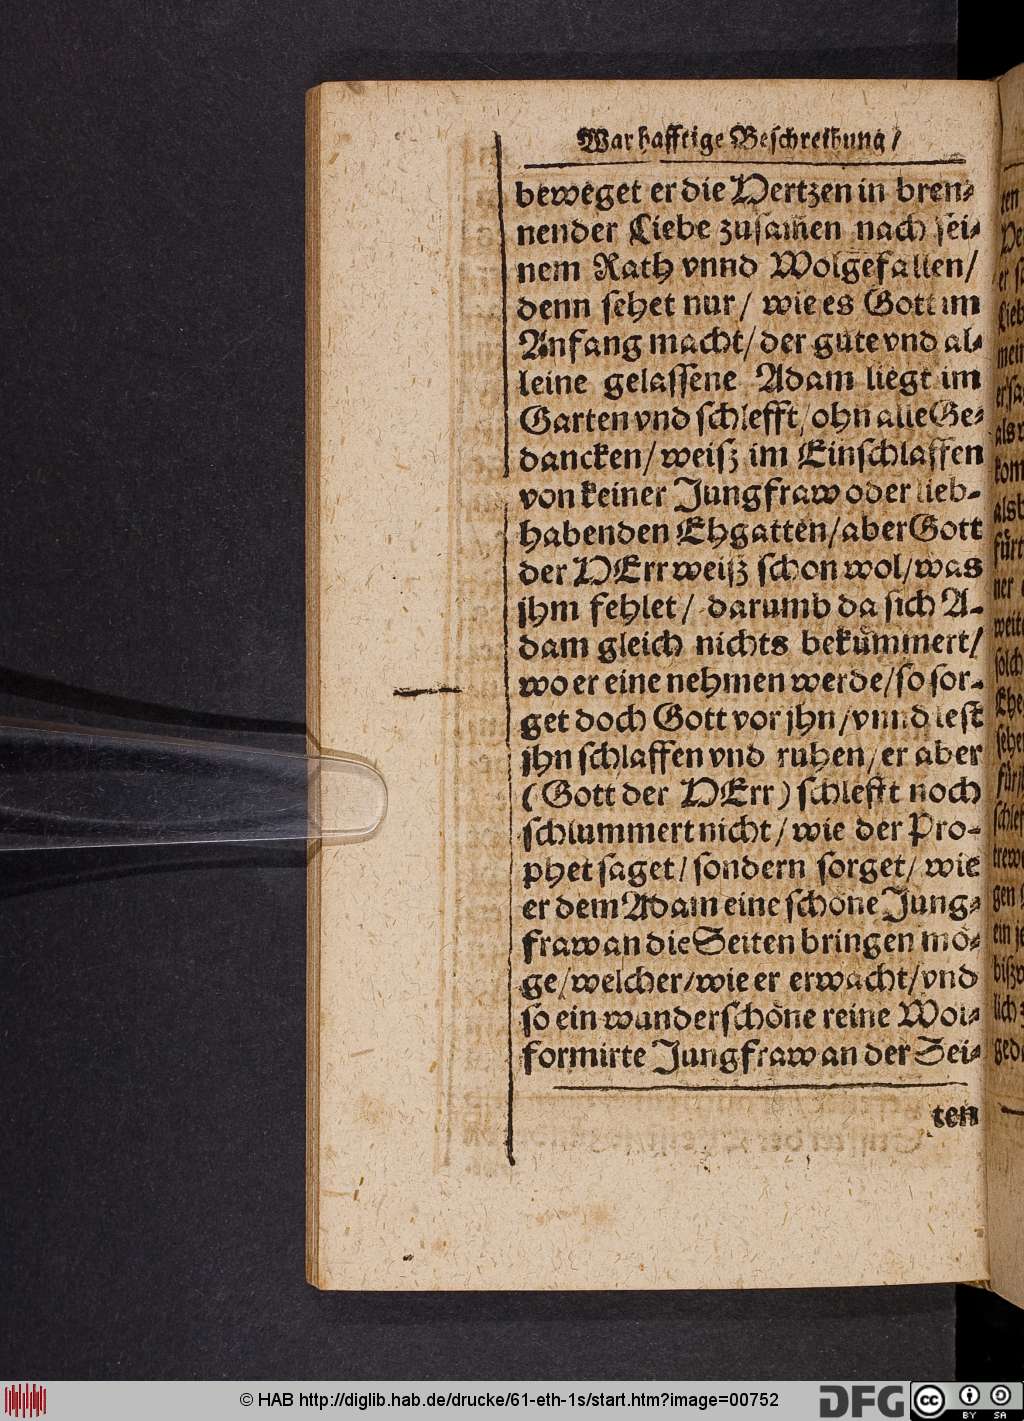 Warhafftige Beschreibung /
beweget er die Hertzen in bren⸗
nender Liebe zusam̃en nach sei⸗
nem Rath vnnd Wolgefallen/
denn sehet nur / wie es Gott im
Anfang macht/ der gute vnd al⸗
leine gelassene Adam liegt im
Garten vnd schlefft/ ohn alle Ge⸗
dancken/ weiß im Einschlaffen
von keiner Jungfraw oder lieb⸗
habenden Ehgatten/ aber Gott
der HErr weiß schon wol/ was
jhm fehlet / darumb da sich A⸗
dam gleich nichts bekuͤmmert/
wo er eine nehmen werde/ so sor⸗
get doch Gott vor jhn / vnnd lest
jhn schlaffen vnd ruhen/ er aber
(Gott der HErr) schlefft noch
schlummert nicht / wie der Pro⸗
phet saget / sondern sorget/ wie
er dem Adam eine schoͤne Jung⸗
fraw an die Seiten bringen moͤ⸗
ge/ welcher/ wie er erwacht/ vnd
so ein wunderschoͤne reine Wol⸗
formirte Jungfraw an der Sei⸗
ten
© HAB http://diglib.hab.de/drucke/61-eth-1s/start.htm?image=00752
DFG
cc BY SA